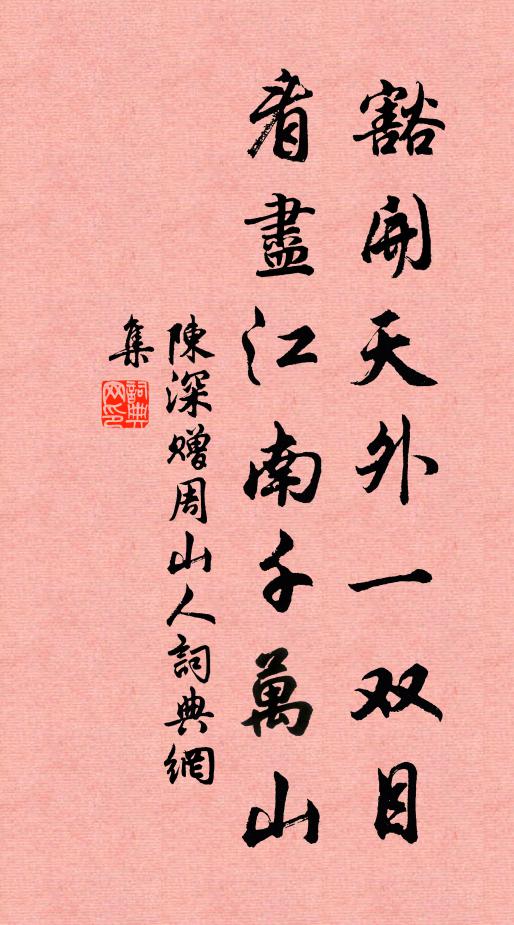 豁開天外一双目
看盡江南千萬山
陳深贈周山人詞典網
集
詞典网印